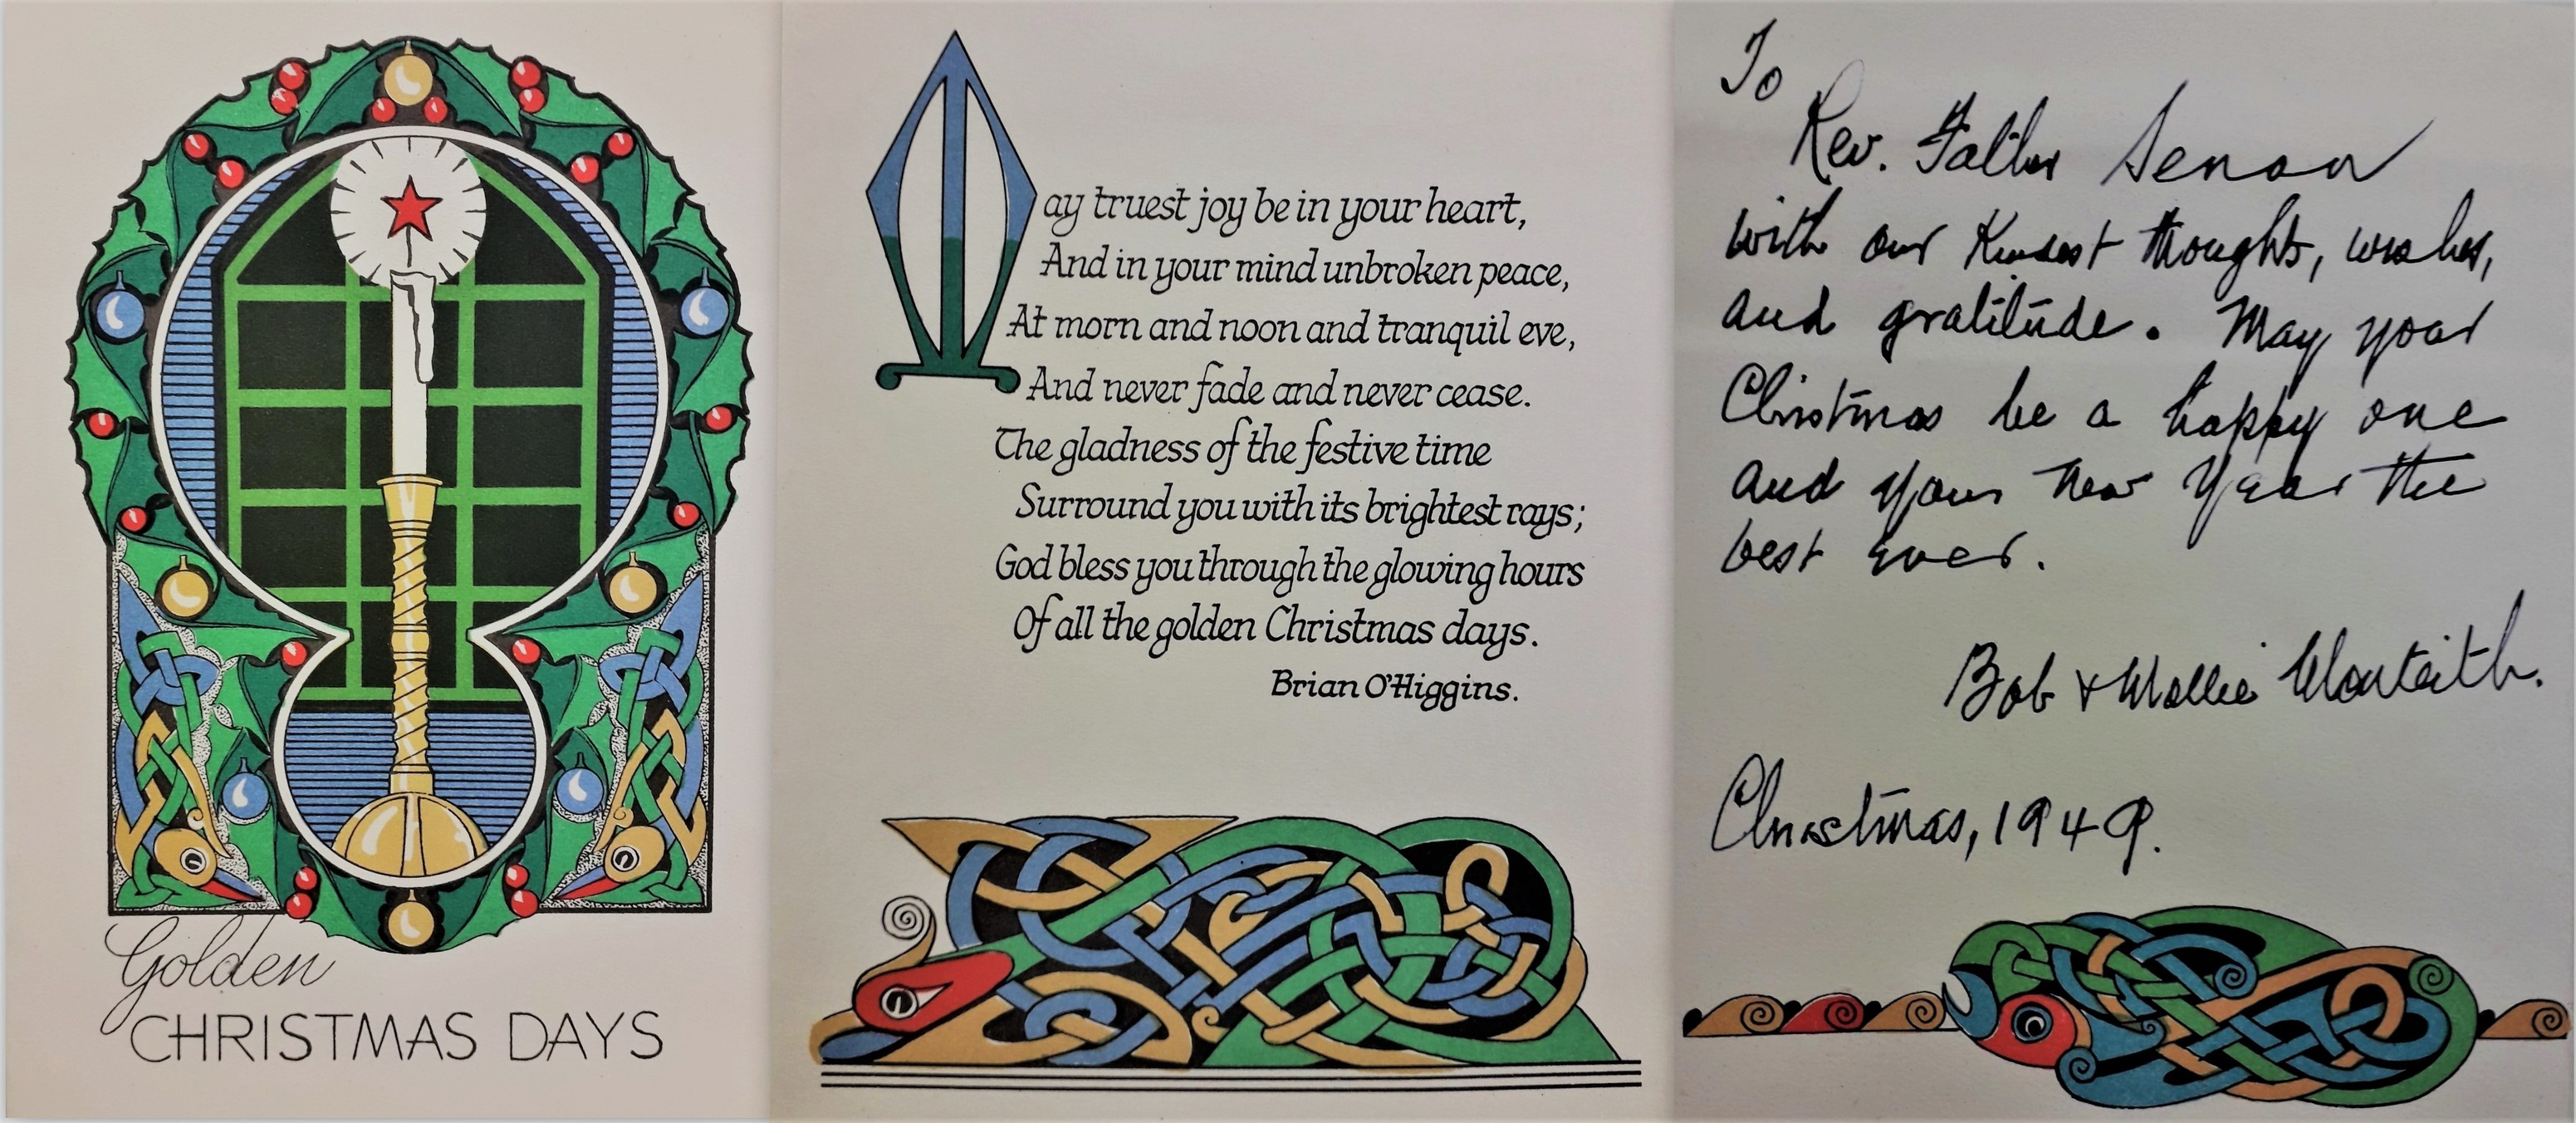 Golden
CHRISTMAS DAYS
May truest joy be in your heart,
And in your mind unbroken peace,
At morn and noon and tranquil eve,
And never fade and never cease.
The gladness of the festive time
Surround you with its brightest rays;
God bless you through the glowing hours
Of all the golden Christmas days.
Brian O'Higgins.
To
Rev. Father Senan
with our Kindest thoughts, wishes,
and gratitude. May your
Christmas be a happy one
and your New Year the
best ever.
Bob & Mollie Monteith.
Christmas, 1949.